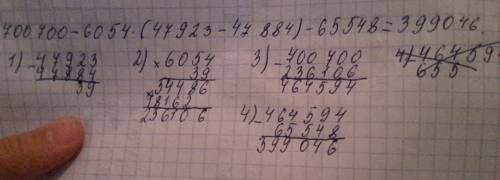 700 700 - 6054 · (47923 - 47 884) - 65548 = 399046.
1) - 47923
44884
39
2) × 6054
39
54486
18162
236106
3) - 700 700
236106
464594
4) - 46459
655
4) - 464594
65548
399046